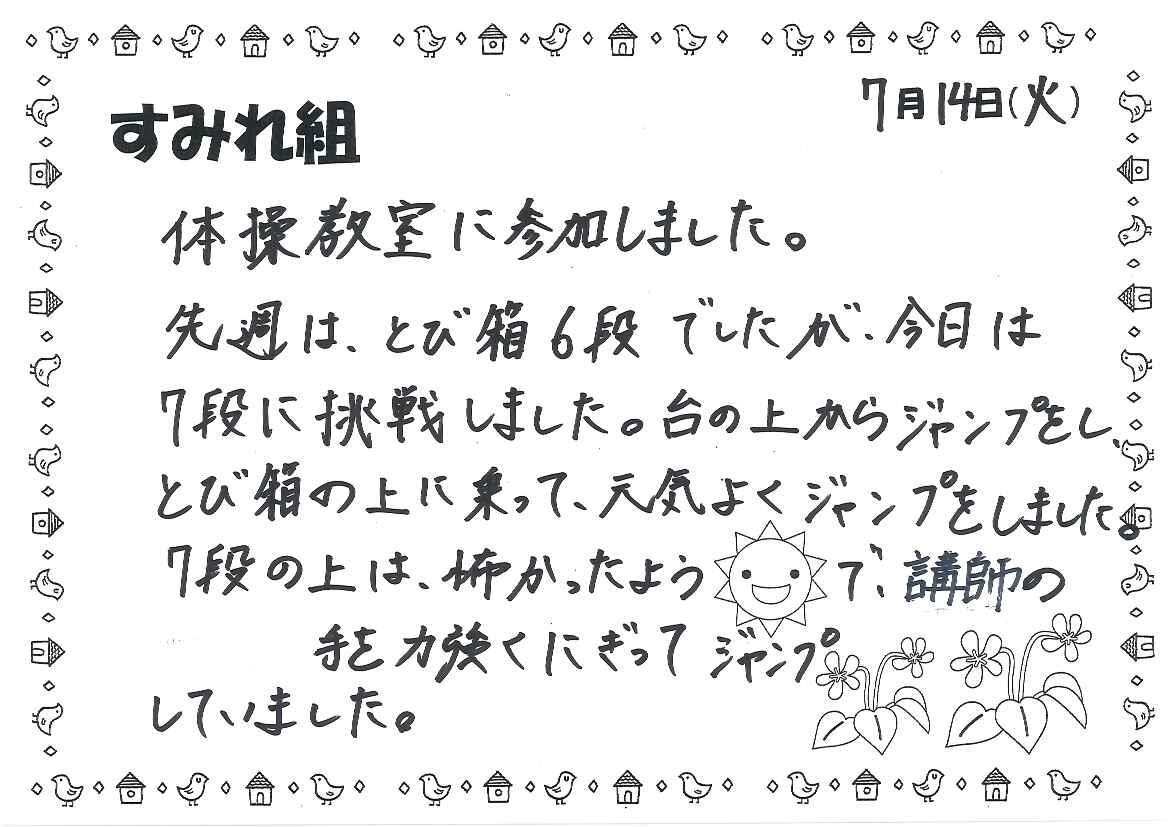 7月14日(火)
すみれ組
体操教室に参加しました。
先週は、とび箱6段でしたが、今日は
7段に挑戦しました。台の上からジャンプをし、
とび箱の上に乗って、元気よくジャンプをしました。
7段の上は、怖かったようで、講師の
手を力強くにぎってジャンプ
していました。